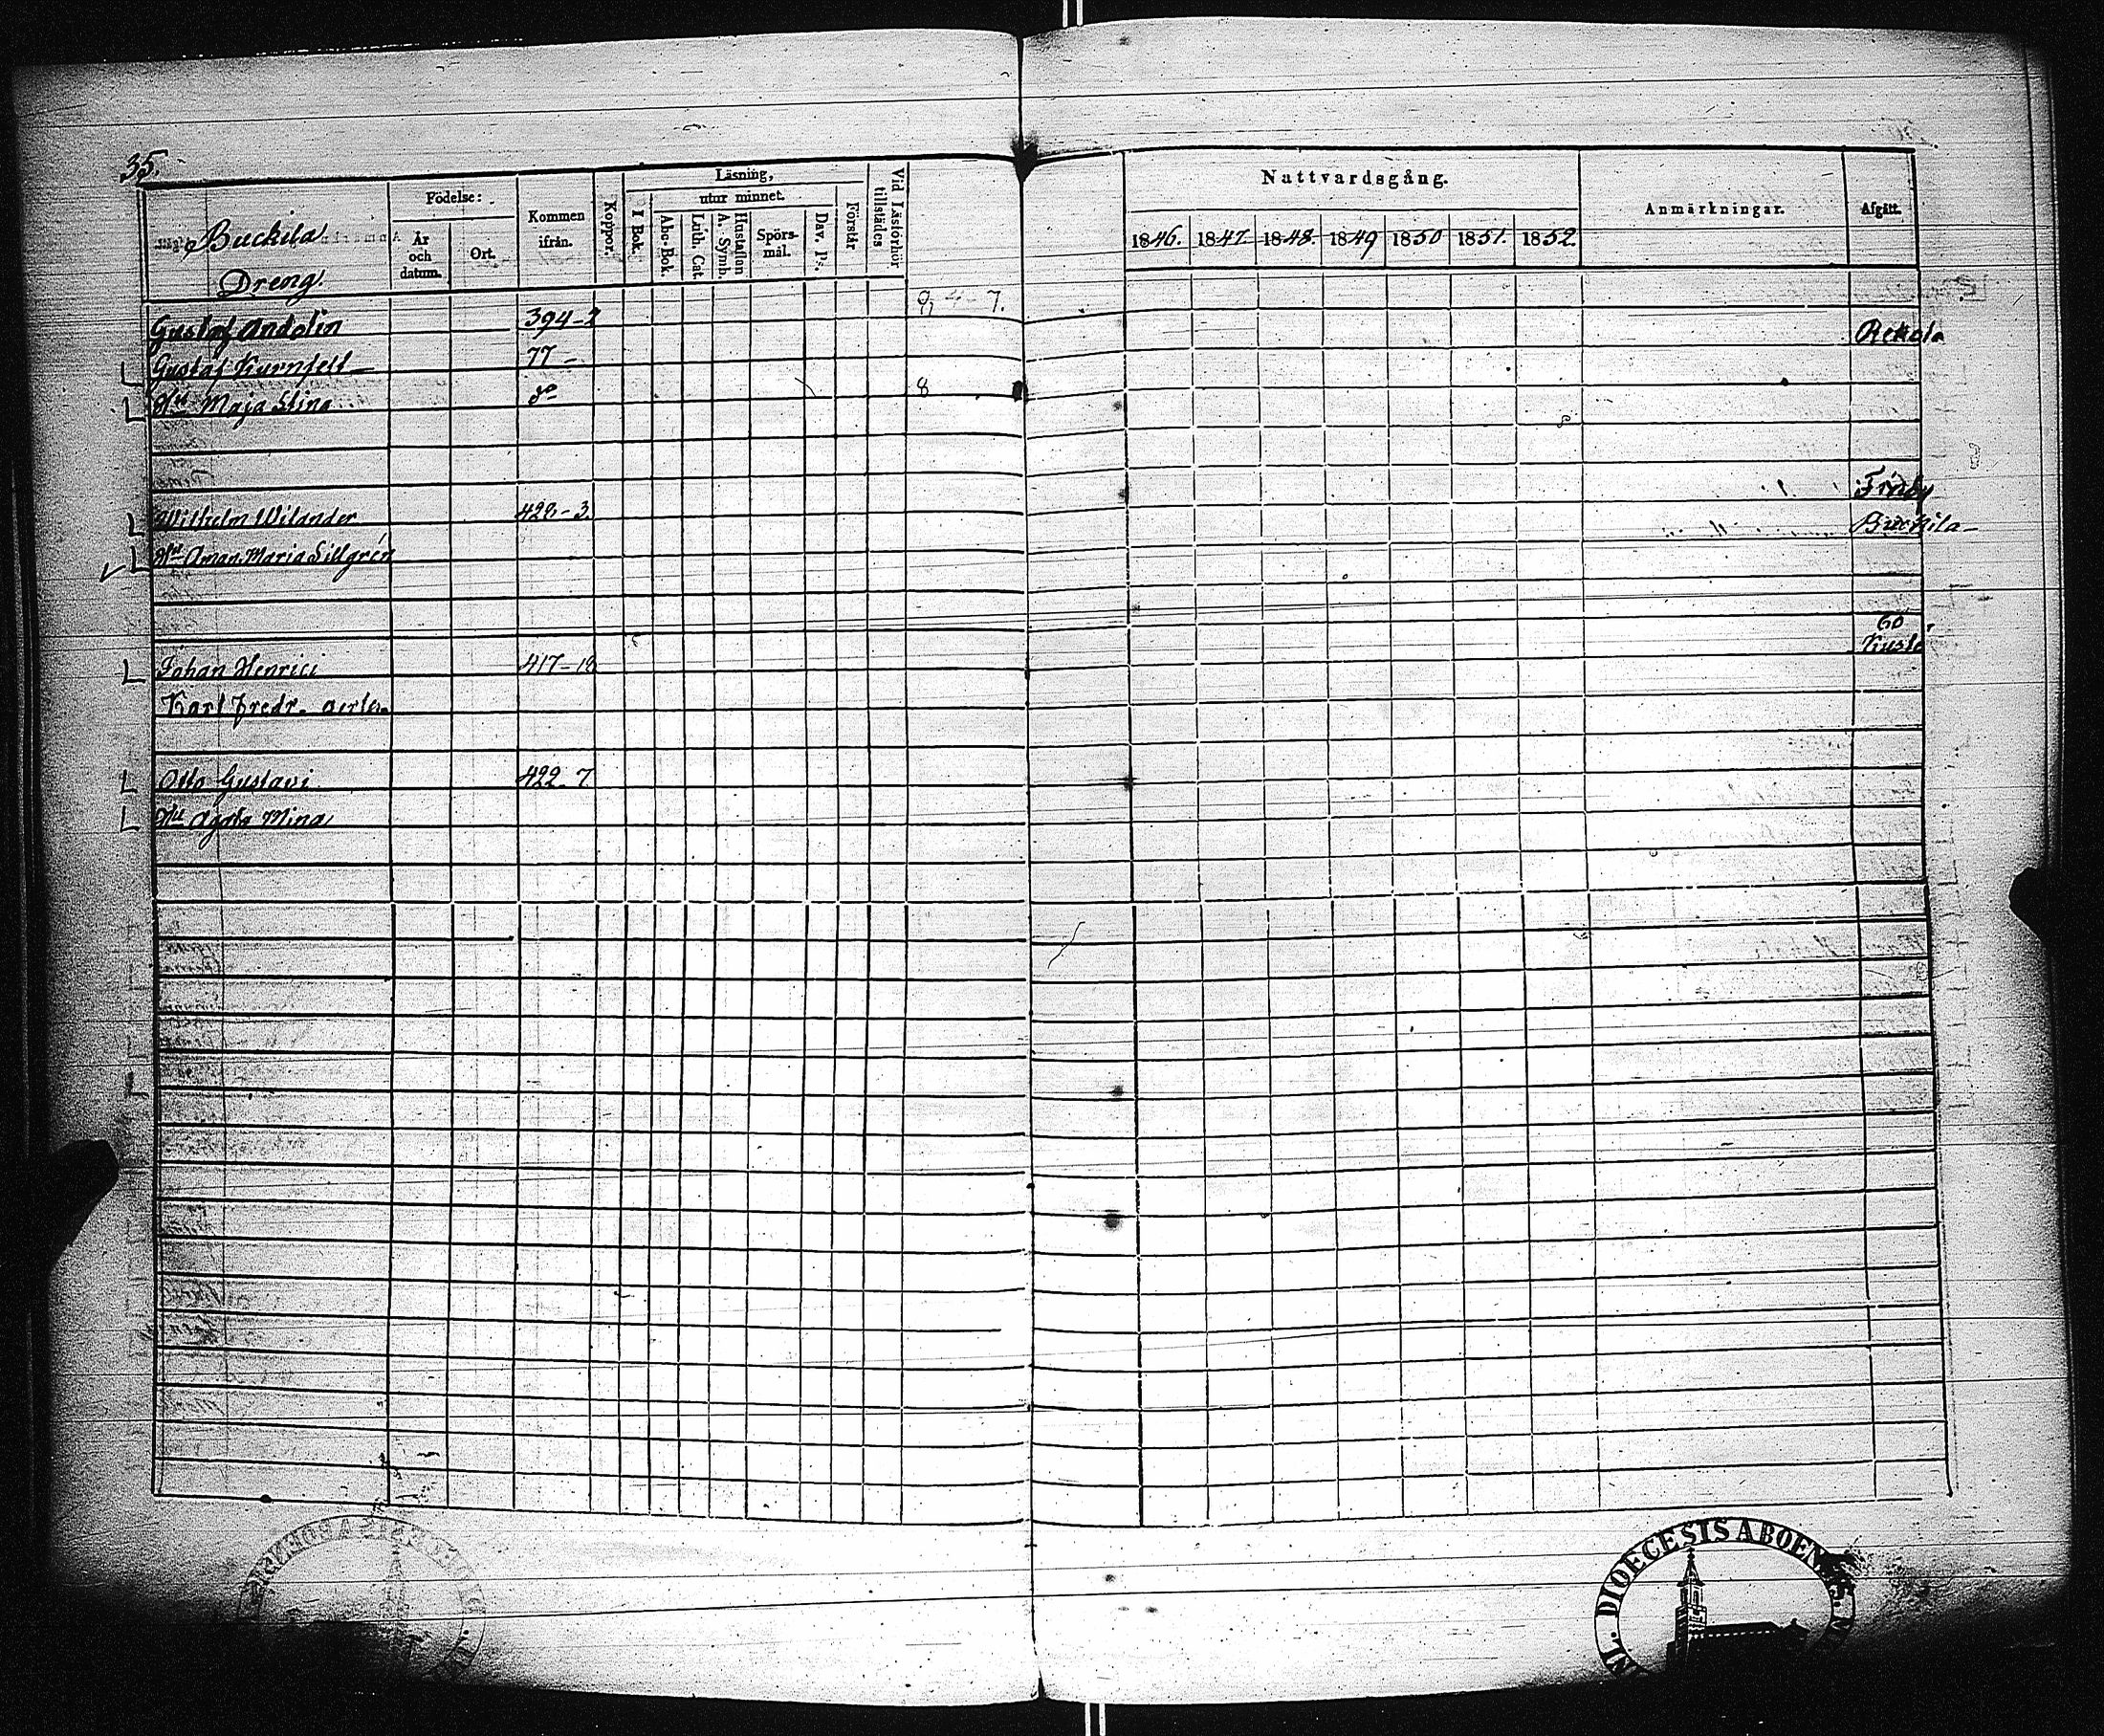 35.
Buckila
Dreng.
Födelse:
År och datum.
Ort.
Kommen ifrån.
Koppor.
Läsning,
I Bok.
utur minnet.
Abc-Bok.
Luth. Cat.
A. Symb. Hustaflon
Spörsmål.
Dav. Ps.
Förstår
Vid Läsförhör tillstädes
Nattvardsgång.
1846. 1847. 1848. 1849 1850 1851. 1852.
Anmärkningar.
Afgått.
7.
Gustaf Andelin 394-2 Rekola
Gustaf Kurnfelt 77-
Hu Maja Stina do 8
Finby
Wilhelm Wilander 422-3. Buckila
Hu Aman. Maria Sillgrén
60
Johan Henrici 417-18
Karl Fredr.
Otto Gustavi 422-7
Hu Agata Mina
DIOECESIS ABOEN